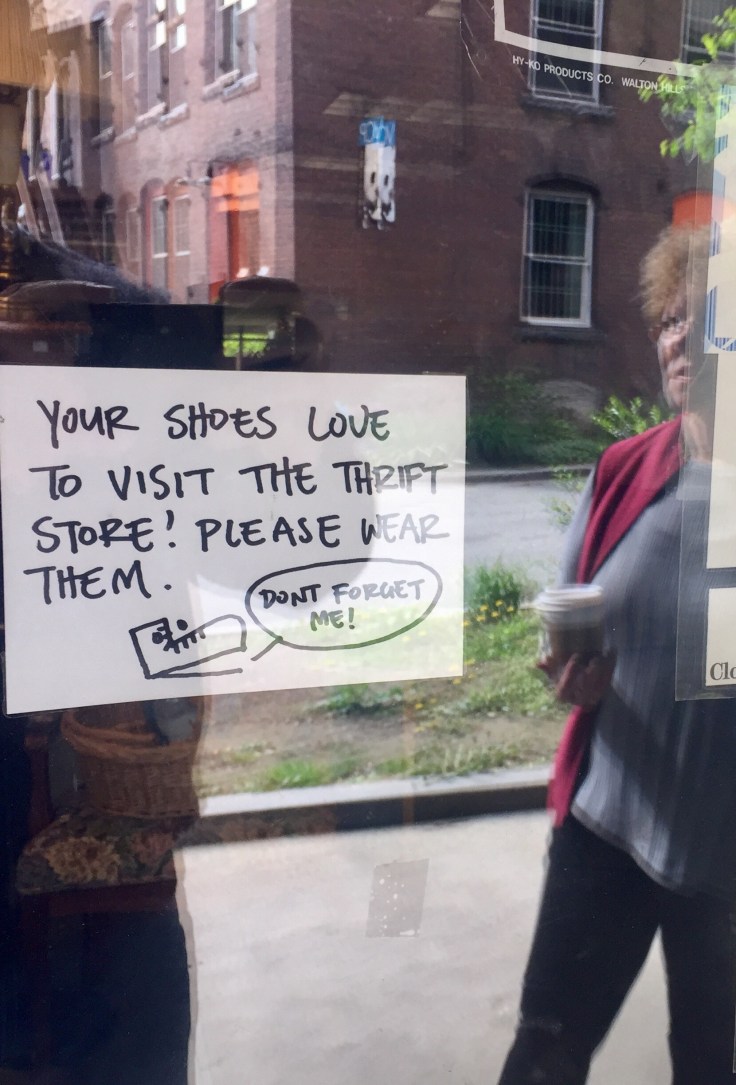 HY-KO PRODUCTS CO. WALTON HILLS
YOUR SHOES LOVE
TO VISIT THE THRIFT
STORE! PLEASE WEAR
THEM.
DONT FORGET
ME!